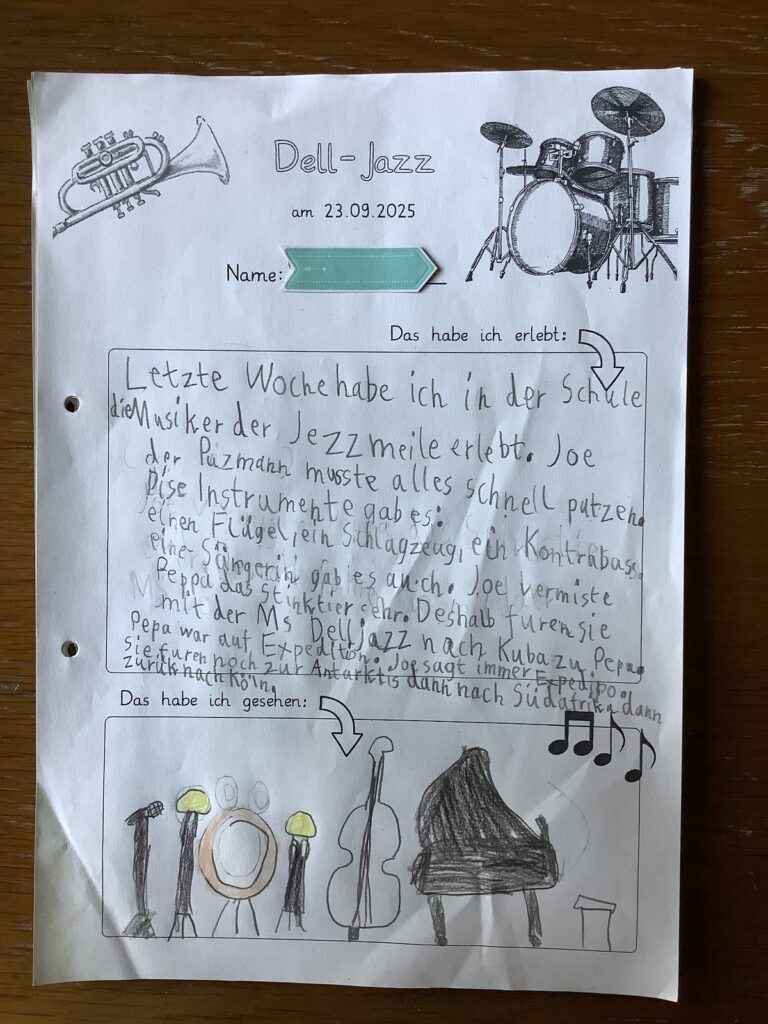 Dell-Jazz
am 23.09.2025
Name:
Das habe ich erlebt:
Letzte Woche habe ich in der Schule
die Musiker der Jezzmeile erlebt. Joe
der Puzmann musste alles schnell putzen.
Dise Instrumente gab es:
einen Flügel, ein Schlagzeug, ein Kontrabass.
eine Sängerin gab es auch. Joe vermiste
Peppa das Stinktier sehr. Deshalb furen sie
mit der Ms Delljazz nach Kuba zu Pepa.
Pepa war auf Expeditón. Joe sagt immer Expedipo.
Sie furen noch zur Antarktis dann nach Südafrika dann
zurük nach Köln.
Das habe ich gesehen: